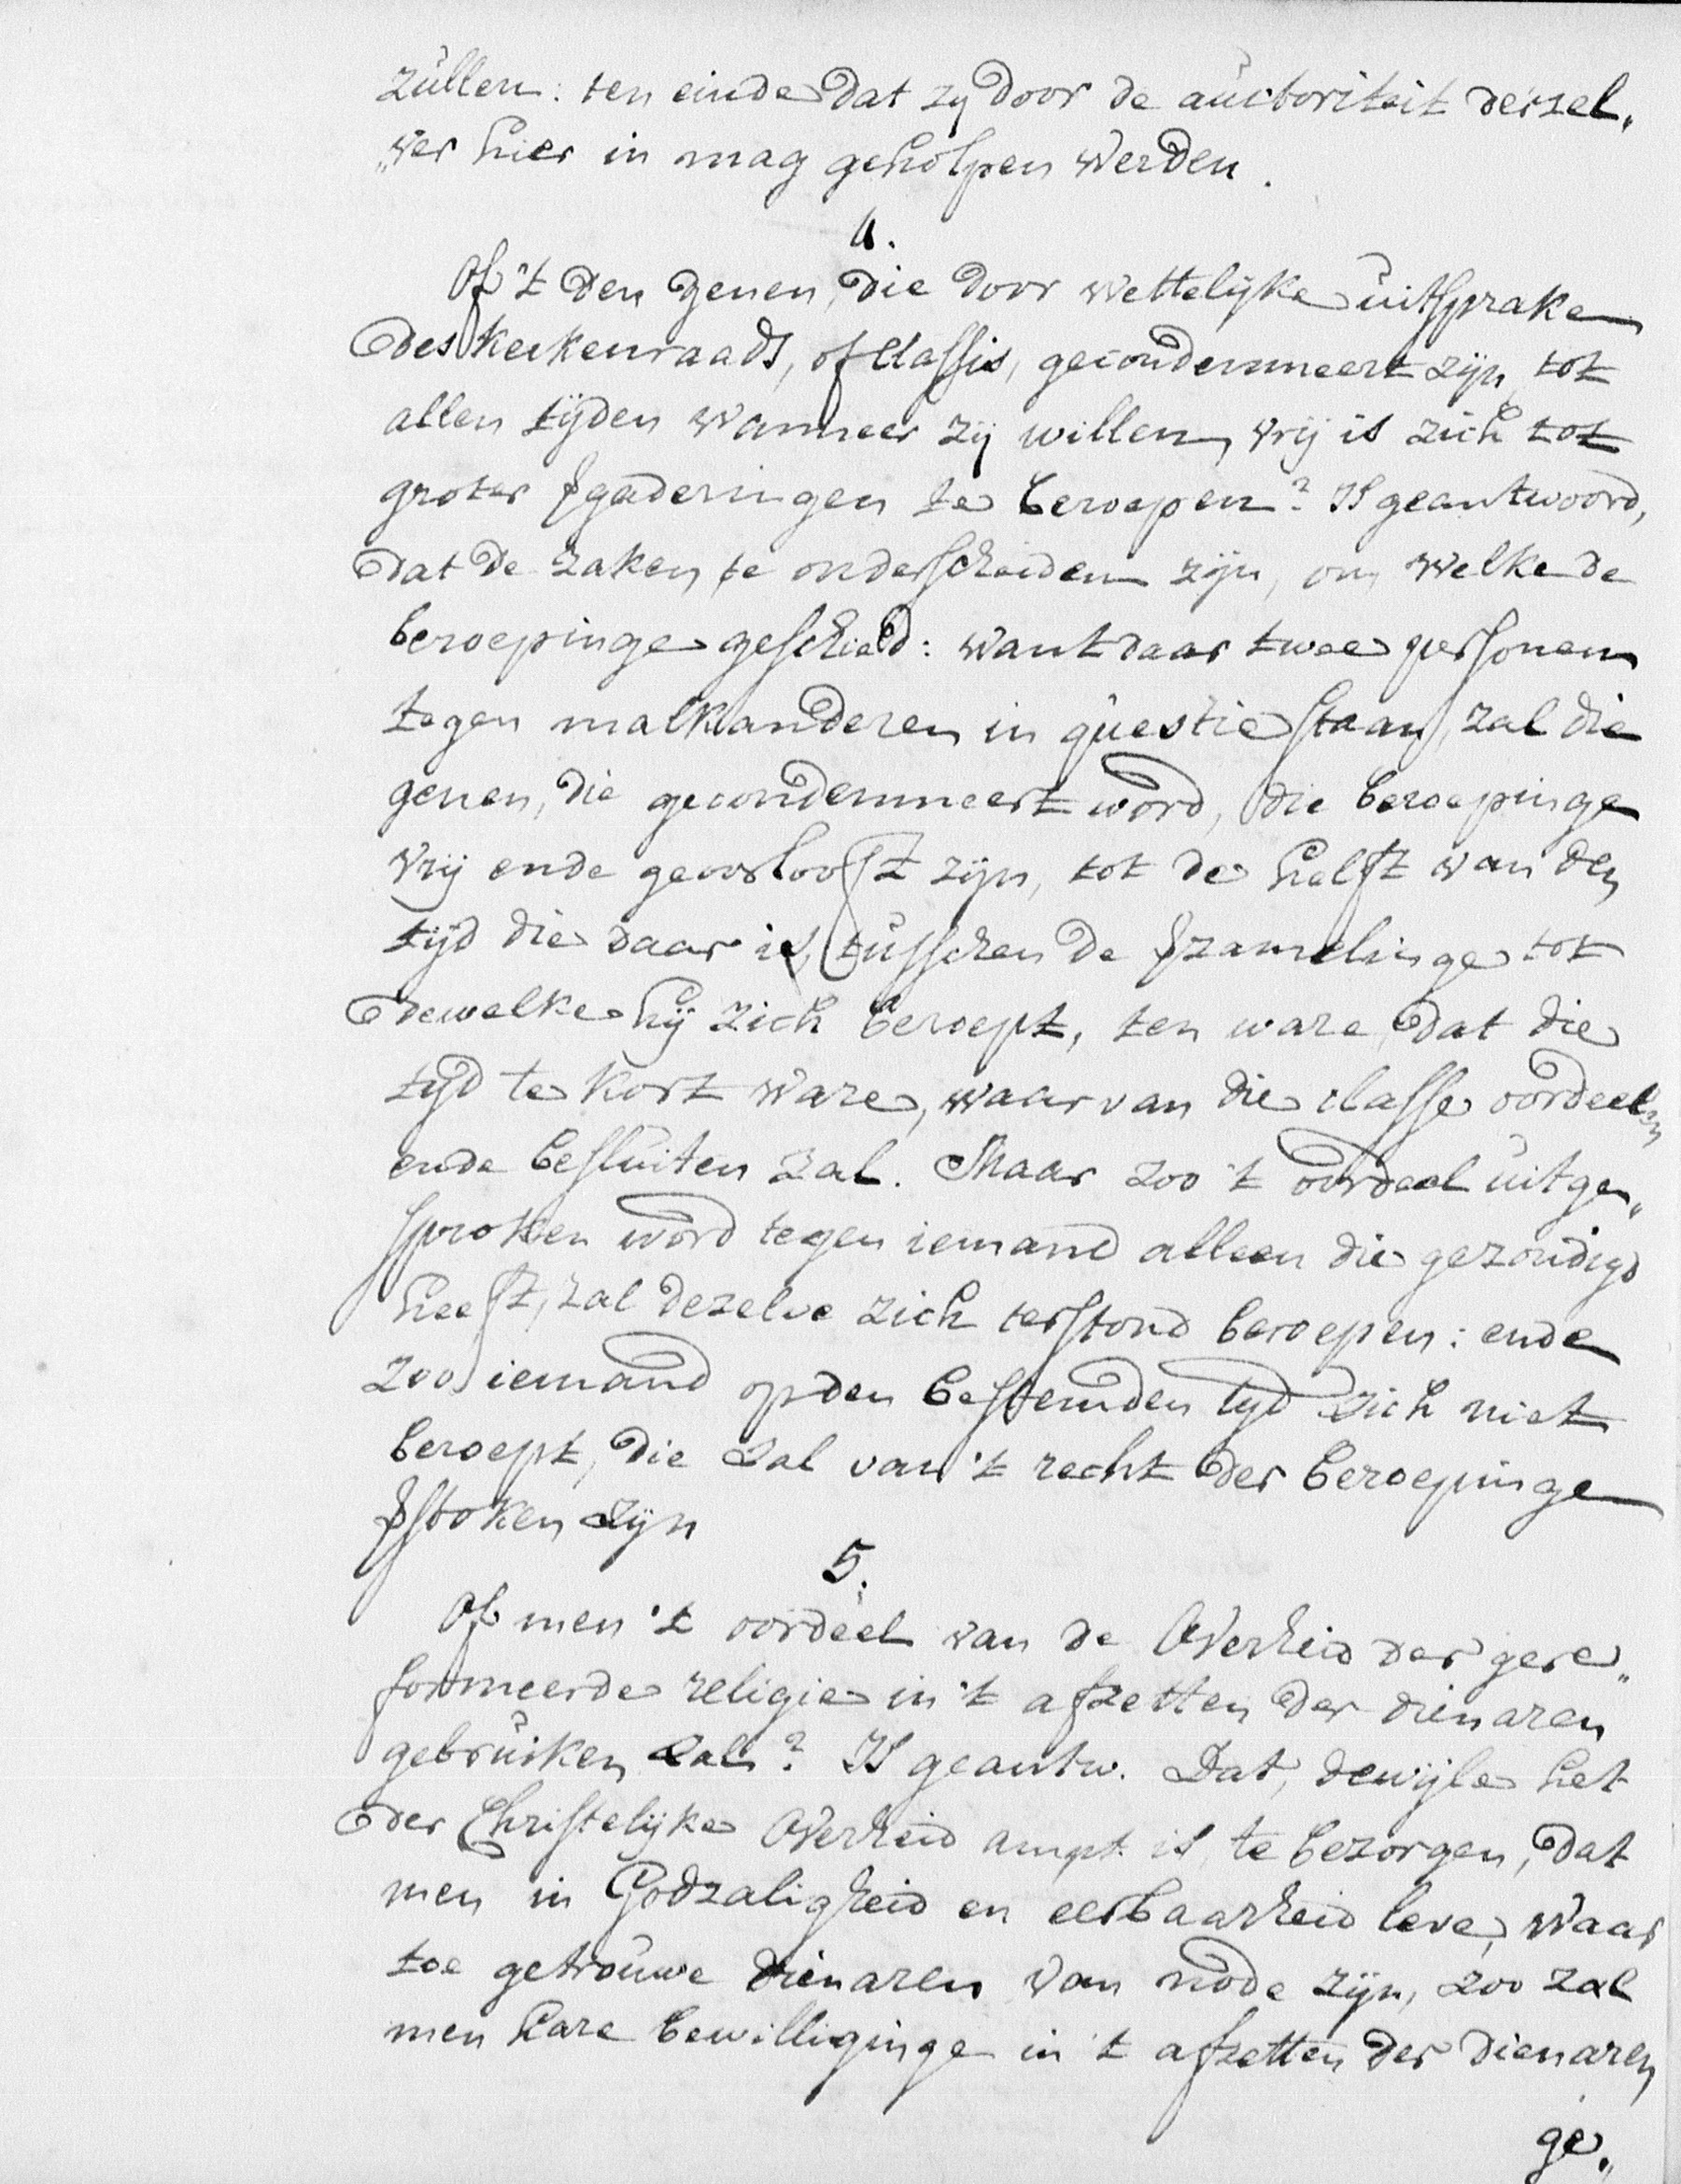 zullen: ten einde dat zy door de auctoriteit derzel„
„ver hier in mag geholpen werden.
4.
Of 't den genen, die door wettelijke uitsprake
des Kerkenraads, of Classis, gecondemneert zijn, tot
allen tijden wanneer zij willen, vrij is zich tot
groter vgaderingen te beroepen? Is geantwoord,
dat de zaken te onderscheiden zijn, om welke de
beroepinge geschied: want daar twee personen
tegen malkanderen in questie staan, zal die
genen, die gecondemneert word, die beroepinge
vrij ende geoorlooft zijn, tot de helft van den
tijd die daar is, tusschen de vzamelinge tot
dewelke hij zich beroept, ten ware, dat die
tijd te kort ware, waar van die classe oordeelen
ende besluiten zal. Maar zoo 't oordeel uitge„
sproken word tegen iemand alleen die gezondigd
heeft, zal dezelve zich terstond beroepen: ende
zoo iemand op den bestemden tyd zich niet
beroept, die zal van 't recht der beroepinge
vstoken zijn
5.
Of men 't oordeel van de Overheid der gere„
formeerde religie in 't afzetten der dienaren
gebruiken zal? Is geantw. Dat, dewijle het
der Christelijke Overheid ampt is, te bezorgen, dat
men in Godzaligheid en eerbaarheid leve, waar
toe getrouwe dienaren van node zijn, zoo zal
men hare bewilliginge in 't afzetten der dienaren
ge„